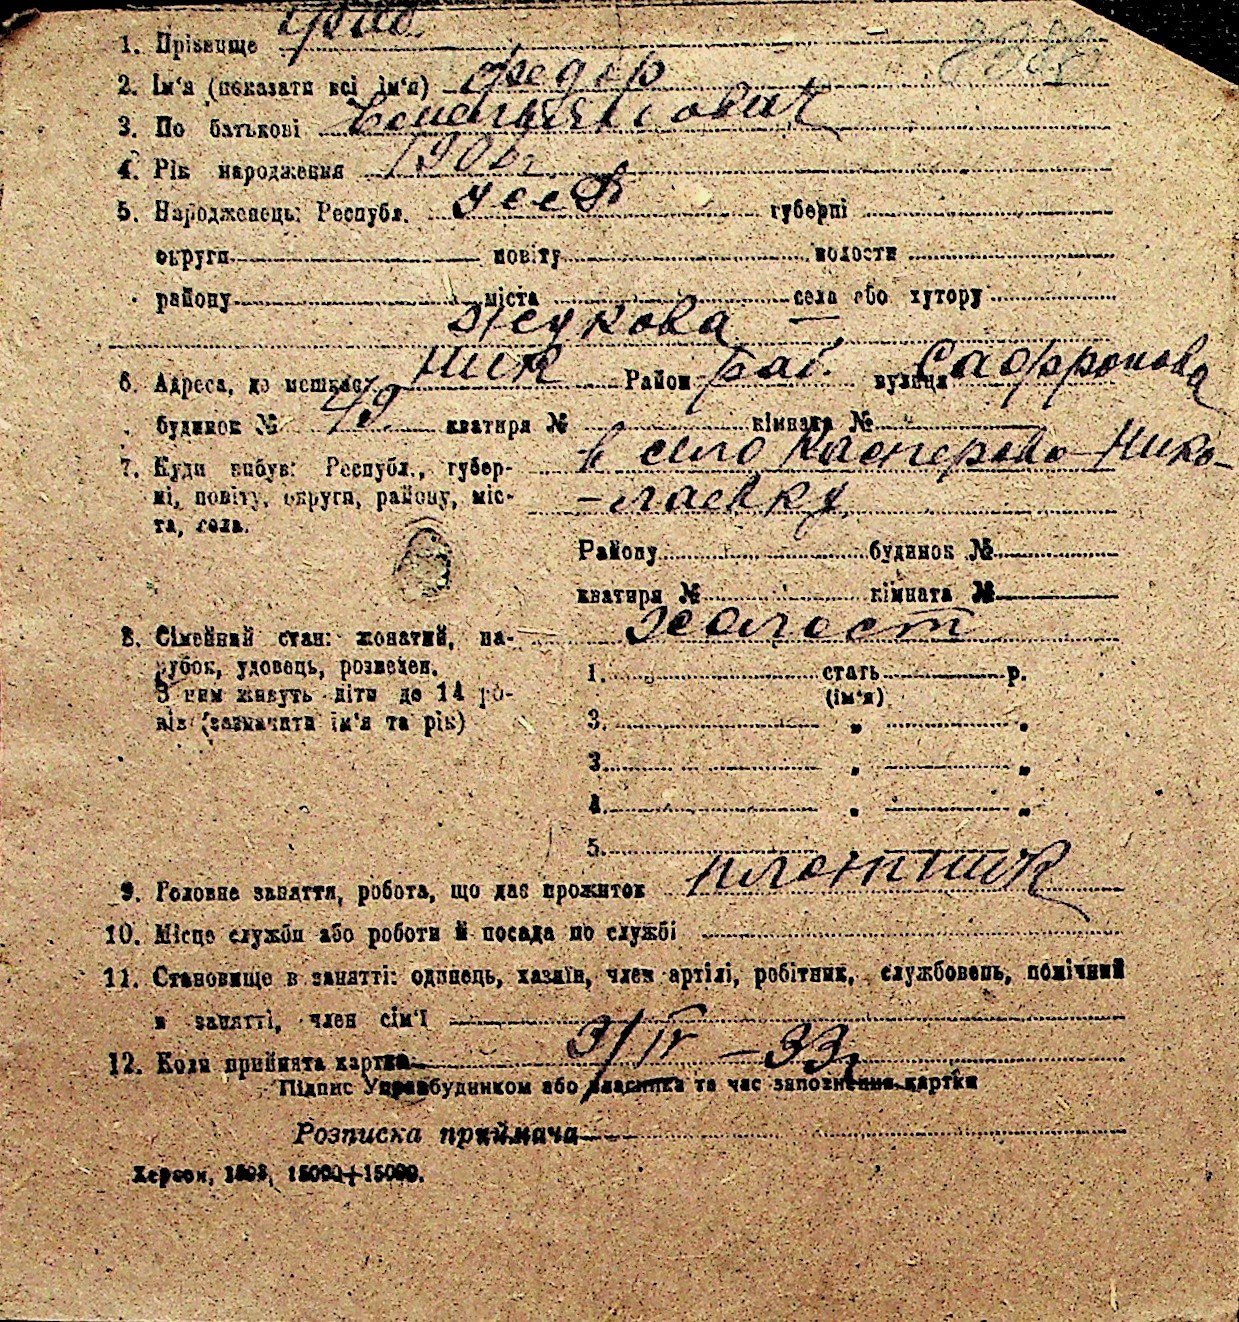 1. Прізвище
2. Ім'я (показати всі ім'я) Федор
3. По батькові
4. Рік народження
5. Народженець: Республ. УССР губерні
округи повіту волости
району міста села або хутору
Жукова
6. Адреса, де мешкає Ник Район раб. вулиця Сафронова
будинок № 49 кватиря № кімната №
7. Куди вибув: Республ., губер- в село Касперово-Нико-
ні, повіту, округи, району, міс- -лаевку
та, села.
Району будинок №
кватиря № кімната №
8. Сімейний стан: жонатий, па- холост
рубок, удовець, розведен.
З ним живуть діти до 14 ро-
ків (зазначити ім'я та рік)
1. стать р.
(ім'я)
3. „ „
3. „ „
4. „ „
5.
9. Головне заняття, робота, що дає прожиток плотник
10. Місце служби або роботи й посада по службі
11. Становище в занятті: одинець, хазяїн, член артілі, робітник, службовець, помічний
в занятті, член сім'ї
12. Коли прийнята картка 9/IV – 33
Підпис Управбудинком або власника та час заповнення картки
Розписка приймача
Херсон, 15000+15000.